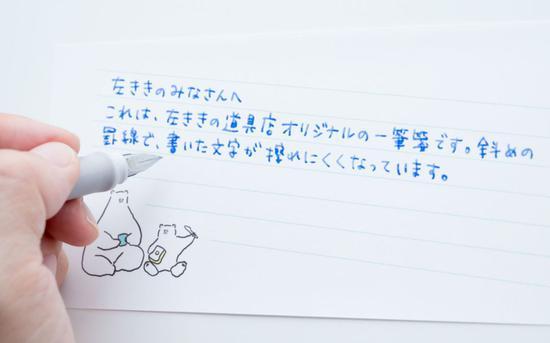 左ききのみなさんへ
これは、左ききの道具店オリジナルの一筆箋です。斜めの
罫線で、書いた文字が擦れにくくなっています。